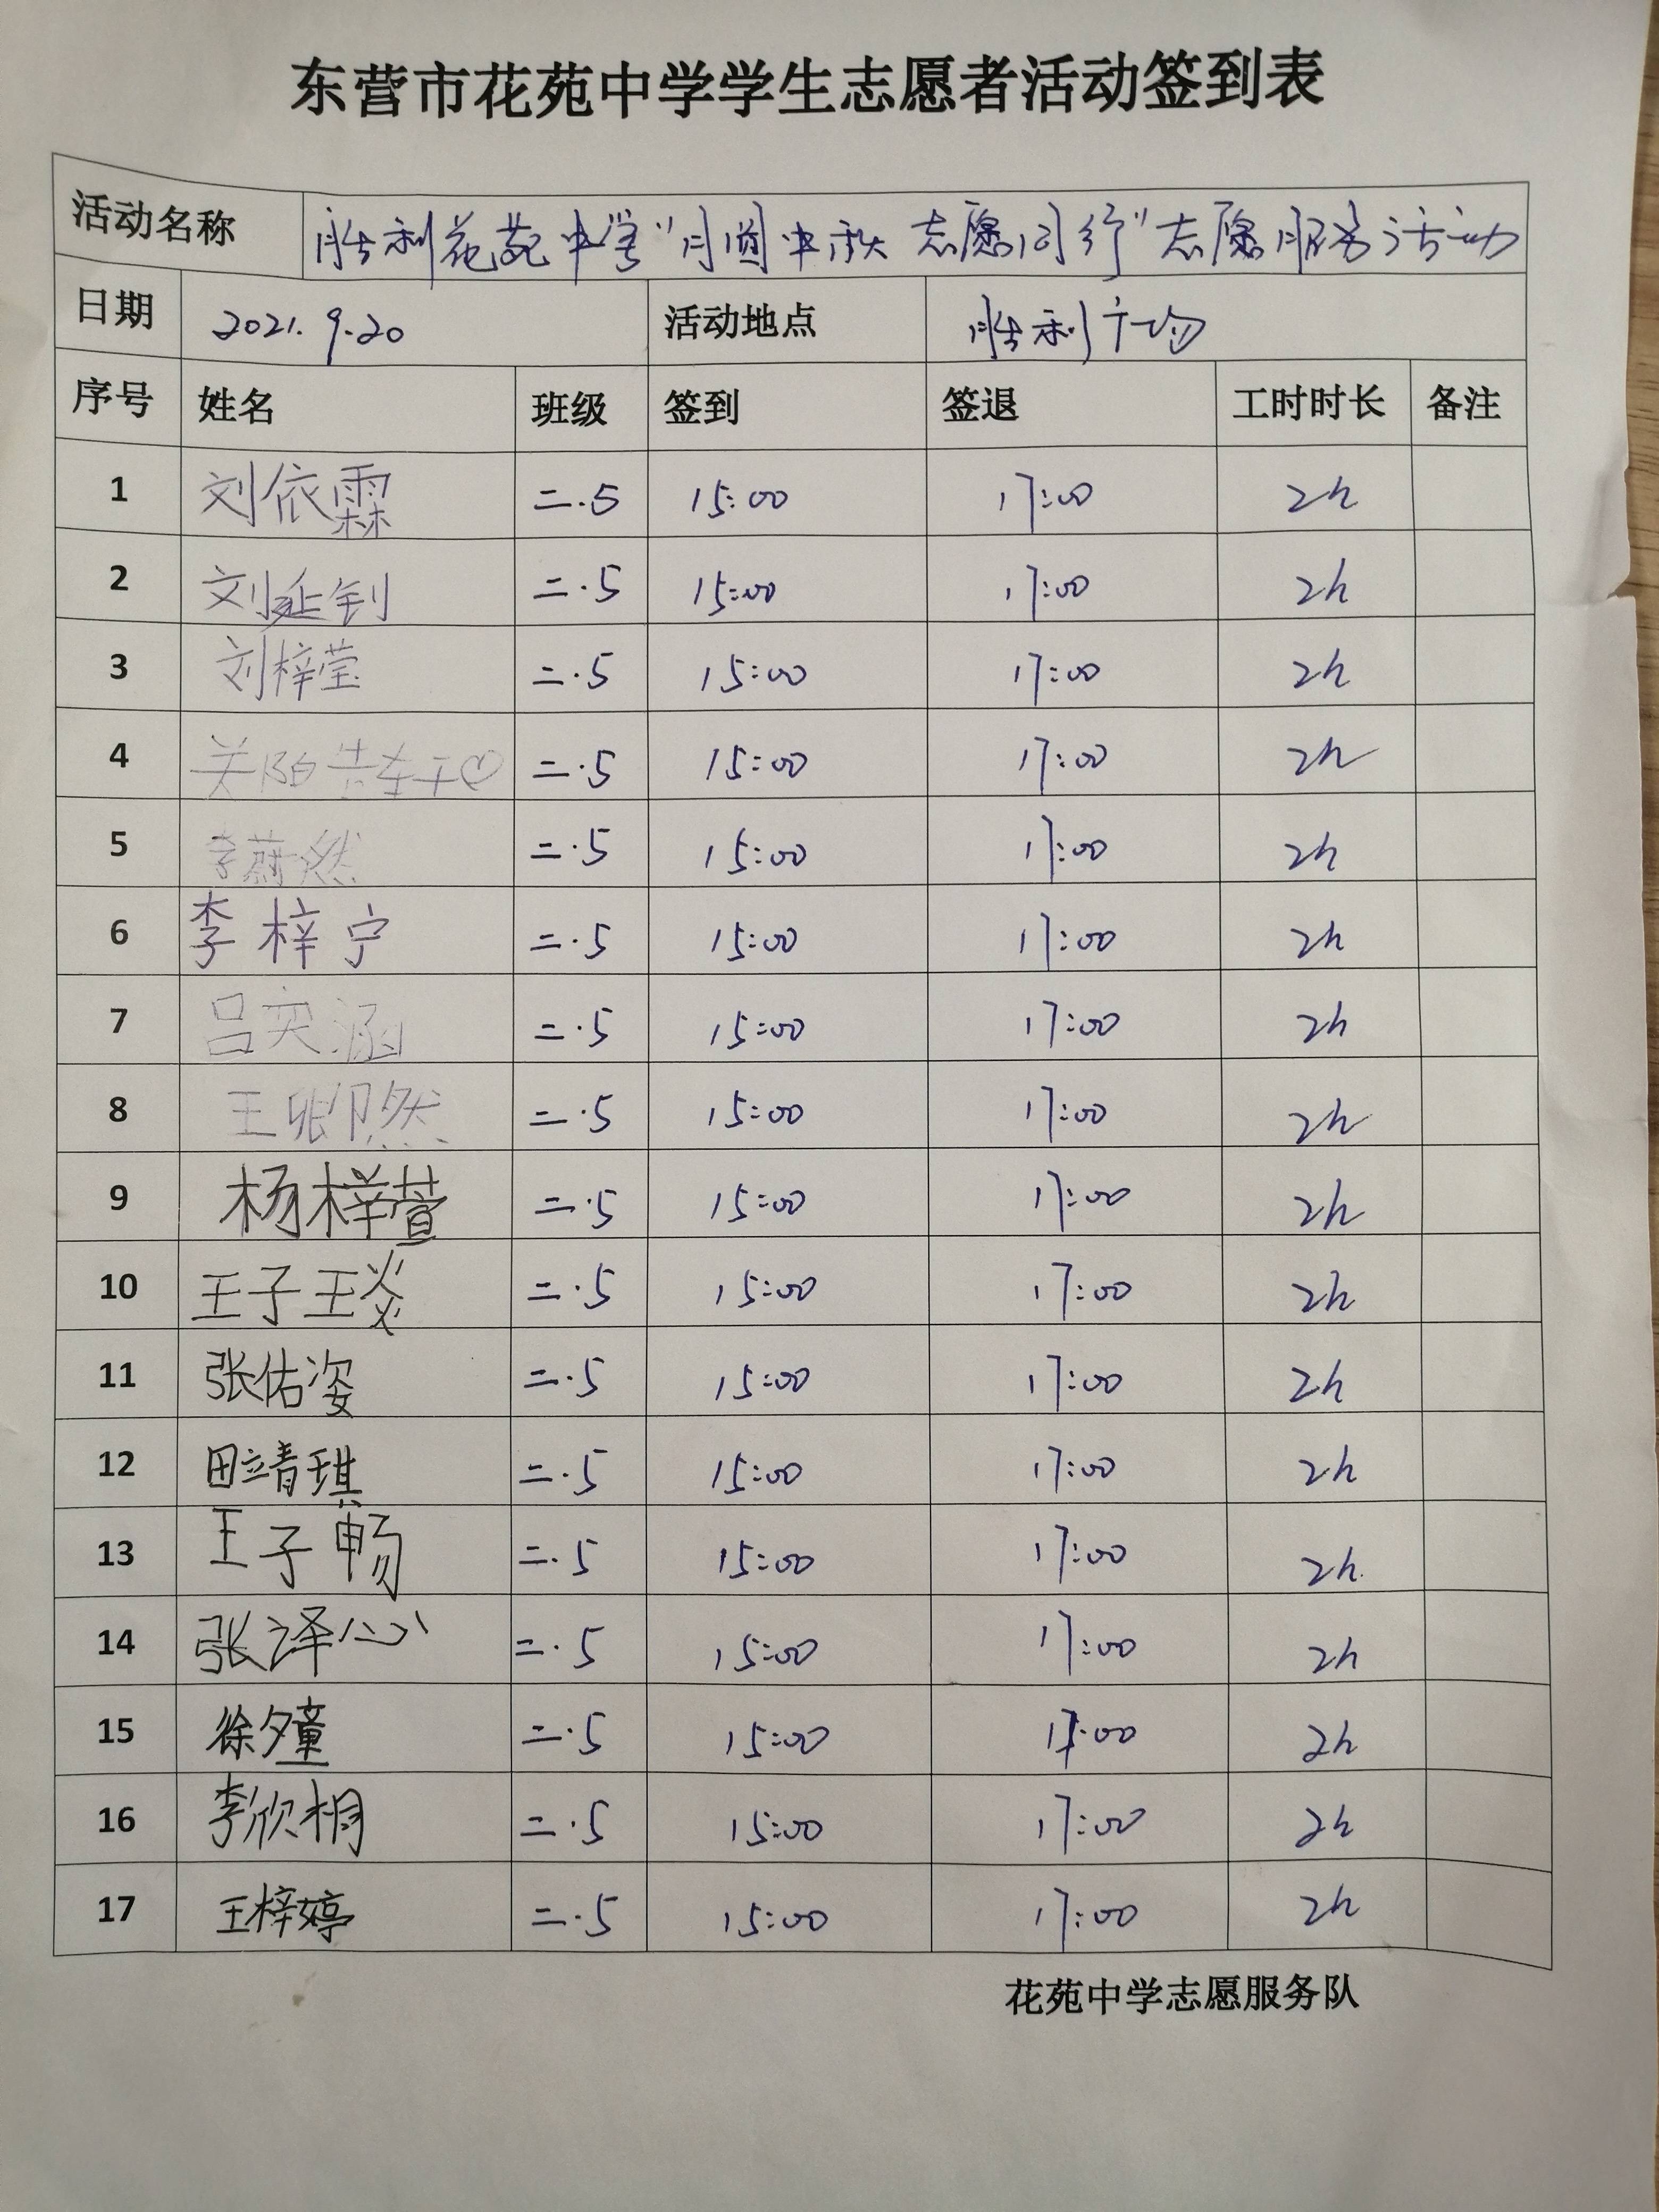 东营市花苑中学学生志愿者活动签到表
活动名称 胜利花苑中学“月圆中秋 志愿同行”志愿服务活动
日期 2021.9.20 活动地点 胜利广场
序号 姓名 班级 签到 签退 工时时长 备注
1 刘依霖 二.5 15:00 17:00 2h
2 刘延钊 二.5 15:00 17:00 2h
3 刘梓莹 二.5 15:00 17:00 2h
4 二.5 15:00 17:00 2h
5 李蔚然 二.5 15:00 17:00 2h
6 李梓宁 二.5 15:00 17:00 2h
7 吕奕涵 二.5 15:00 17:00 2h
8 二.5 15:00 17:00 2h
9 杨梓萱 二.5 15:00 17:00 2h
10 王子琰 二.5 15:00 17:00 2h
11 张佑姿 二.5 15:00 17:00 2h
12 田靖琪 二.5 15:00 17:00 2h
13 王子畅 二.5 15:00 17:00 2h
14 张泽心 二.5 15:00 17:00 2h
15 徐夕童 二.5 15:00 17:00 2h
16 李欣桐 二.5 15:00 17:00 2h
17 王梓婷 二.5 15:00 17:00 2h
花苑中学志愿服务队